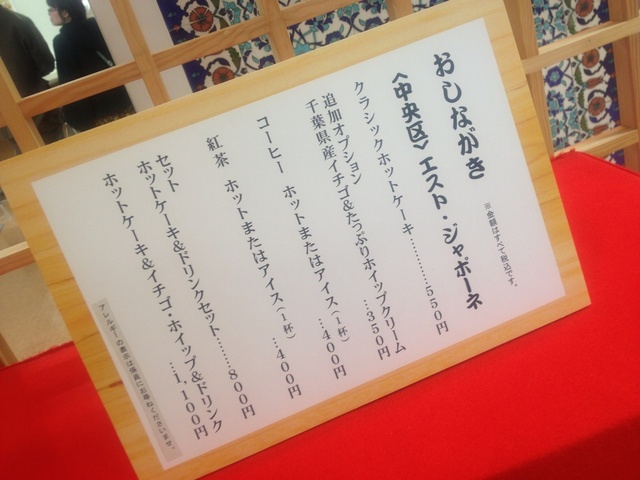 おしながき
※金額はすべて税込です。
〈中央区〉エスト・ジャポーネ
クラシックホットケーキ…………550円
追加オプション
千葉県産イチゴ&たっぷりホイップクリーム
…350円
コーヒー ホットまたはアイス(1杯)
…400円
紅茶 ホットまたはアイス(1杯)
…400円
セット
ホットケーキ&ドリンクセット………800円
ホットケーキ&イチゴ・ホイップ&ドリンク
…1,100円
アレルギーの表示は係員にお尋ねくださいませ。